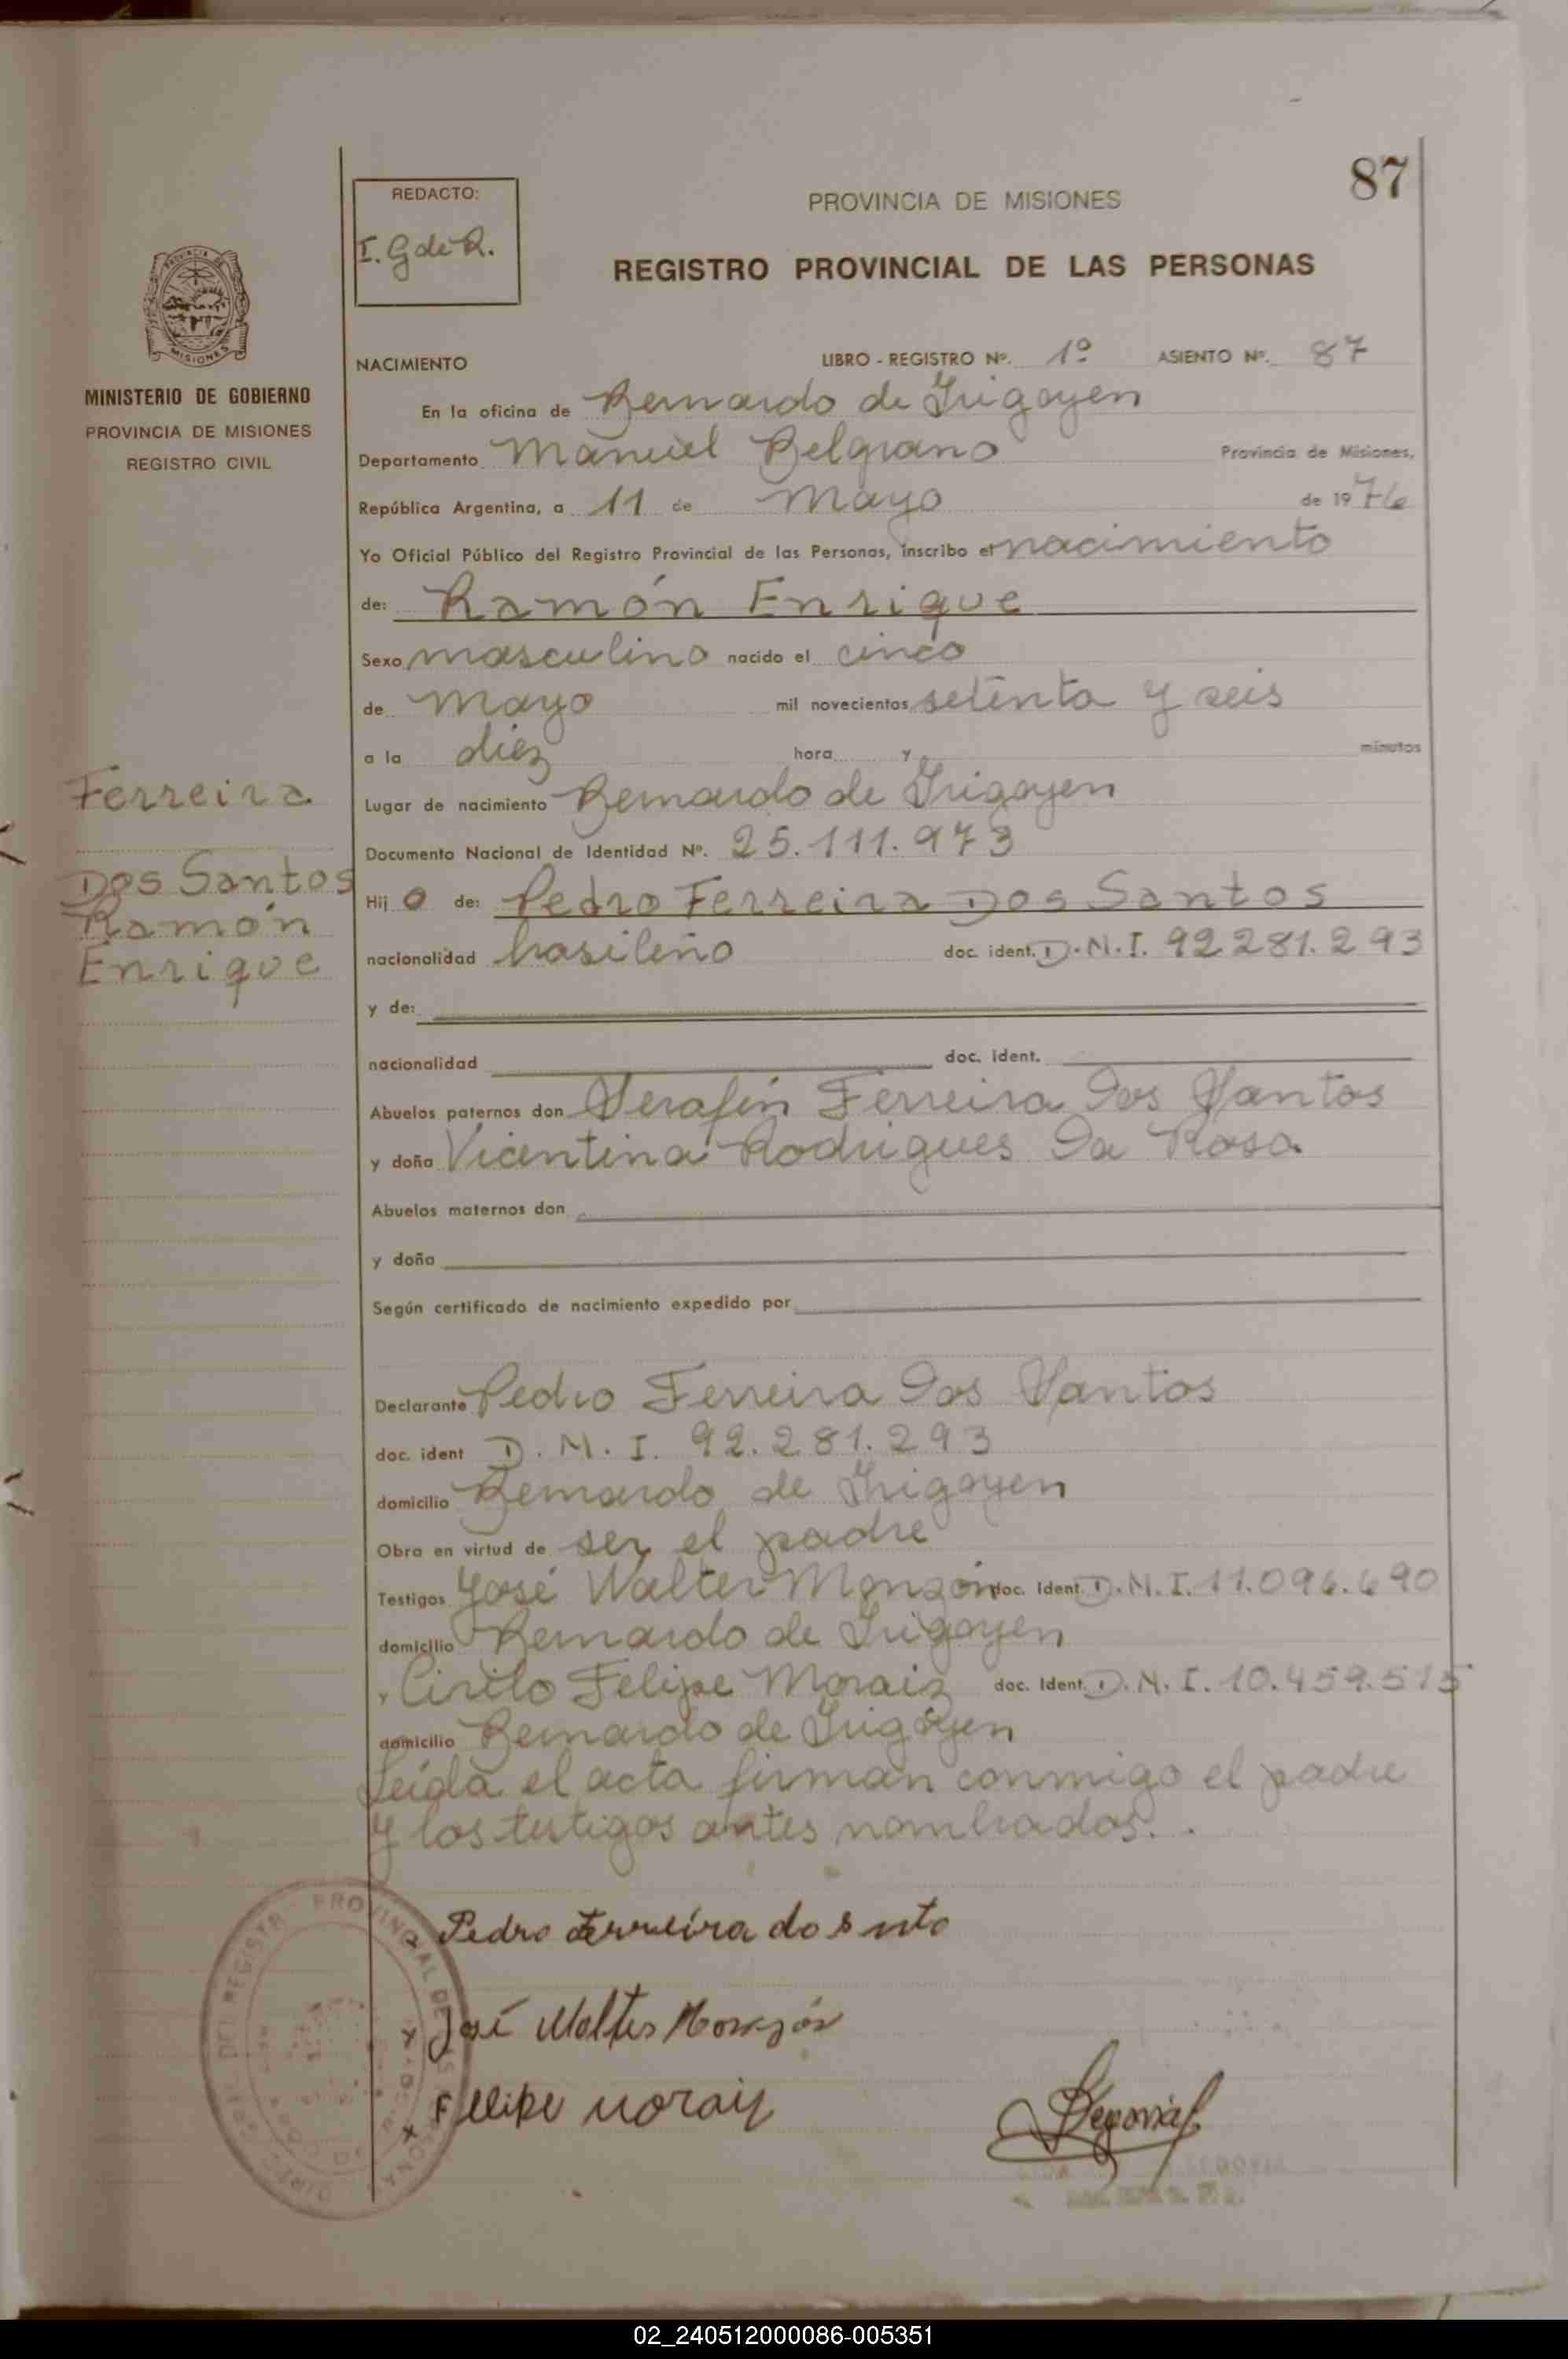 87
REDACTO:
I. G de R.
PROVINCIA DE MISIONES
REGISTRO PROVINCIAL DE LAS PERSONAS
MISIONES
MINISTERIO DE GOBIERNO
PROVINCIA DE MISIONES
REGISTRO CIVIL
NACIMIENTO LIBRO - REGISTRO Nº. 1º ASIENTO Nº. 87
En la oficina de Bernardo de Irigoyen
Departamento Manuel Belgrano Provincia de Misiones,
República Argentina, a 11 de Mayo de 1976
Yo Oficial Público del Registro Provincial de las Personas, inscribo el nacimiento
de: Ramón Enrique
Sexo masculino nacido el cinco
de Mayo mil novecientos setenta y seis
a la diez hora y minutos
Lugar de nacimiento Bernardo de Irigoyen
Documento Nacional de Identidad Nº. 25.111.973
Hijo de: Pedro Ferreira Dos Santos
nacionalidad brasileño doc. ident. D.N.I. 92281.293
y de:
nacionalidad doc. ident.
Abuelos paternos don Serafín Ferreira Dos Santos
y doña Vicentina Rodrigues Da Rosa
Abuelos maternos don
y doña
Según certificado de nacimiento expedido por
Ferreira
Dos Santos
Ramón
Enrique
Declarante Pedro Ferreira Dos Santos
doc. ident D.N.I. 92.281.293
domicilio Bernardo de Irigoyen
Obra en virtud de ser el padre
Testigos José Walter Monzón doc. Ident D.N.I. 11.096.690
domicilio Bernardo de Irigoyen
y Cirilo Felipe Moraiz doc. Ident D.N.I. 10.459.515
domicilio Bernardo de Irigoyen
Leída el acta firman conmigo el padre
y los testigos antes nombrados..
Pedro Ferreira dos nto
José Walter Monzón
Fellipe Moraiz
Segovia
02_240512000086-005351